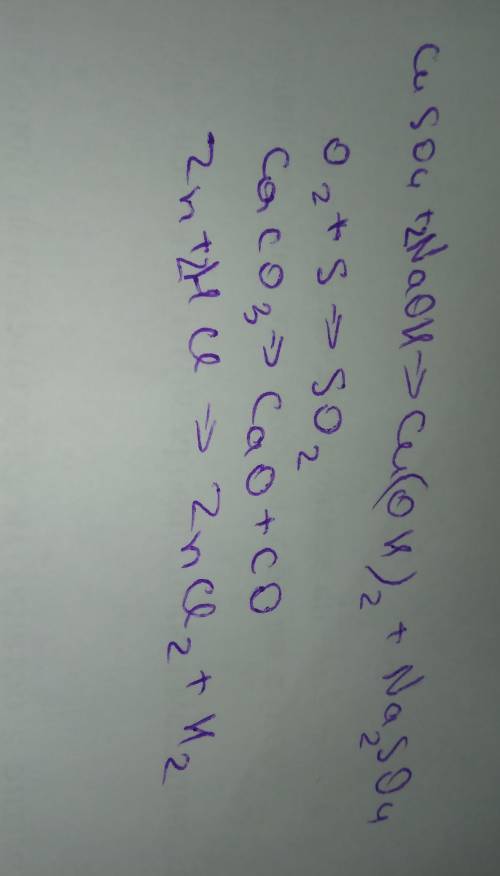 CuSO4 + 2NaOH → Cu(OH)2 + Na2SO4
O2 + S ⇒ SO2
CaCO3 ⇒ CaO + CO
Zn + 2HCl ⇒ ZnCl2 + H2